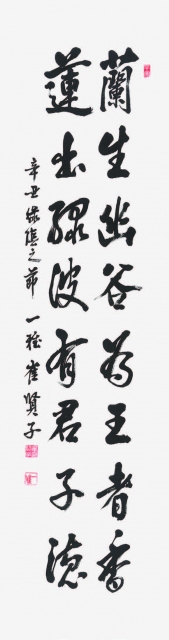 蘭生幽谷為王者香
蓮出綠波有君子德
辛丑綠陰之節 一 崔賢子